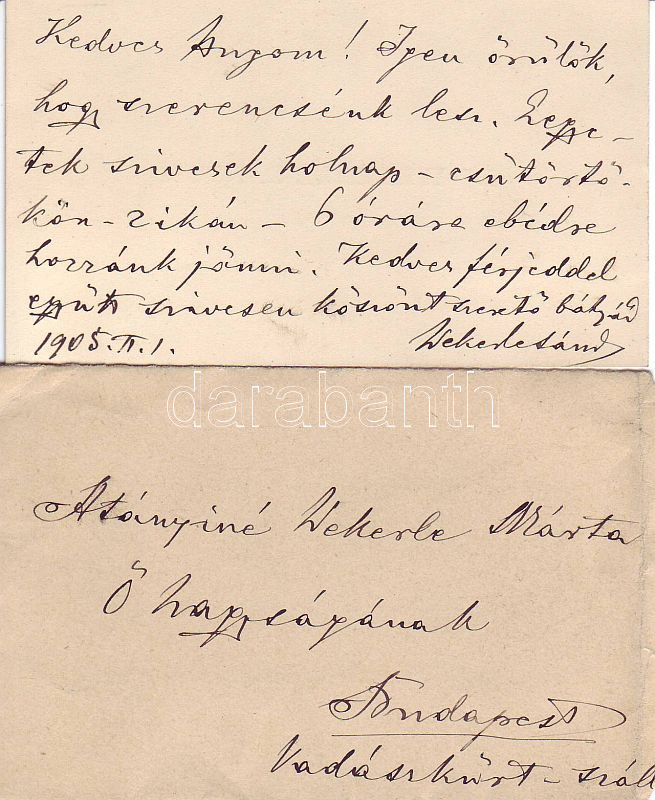 Kedves Angom! Igen örülök,
hogy szerencsénk lesz. Legye-
tek szivesek holnap – csütörtö-
kön – 2ikán – 6 órára ebédre
hozzánk jönni. Kedves férjeddel
együtt szivesen köszönt szerető bátyád
1905. II. 1. Wekerle Sánd
darabanth
Atányiné Wekerle Márta
Ő nagyságának
Budapest
Vadászkürt – száll